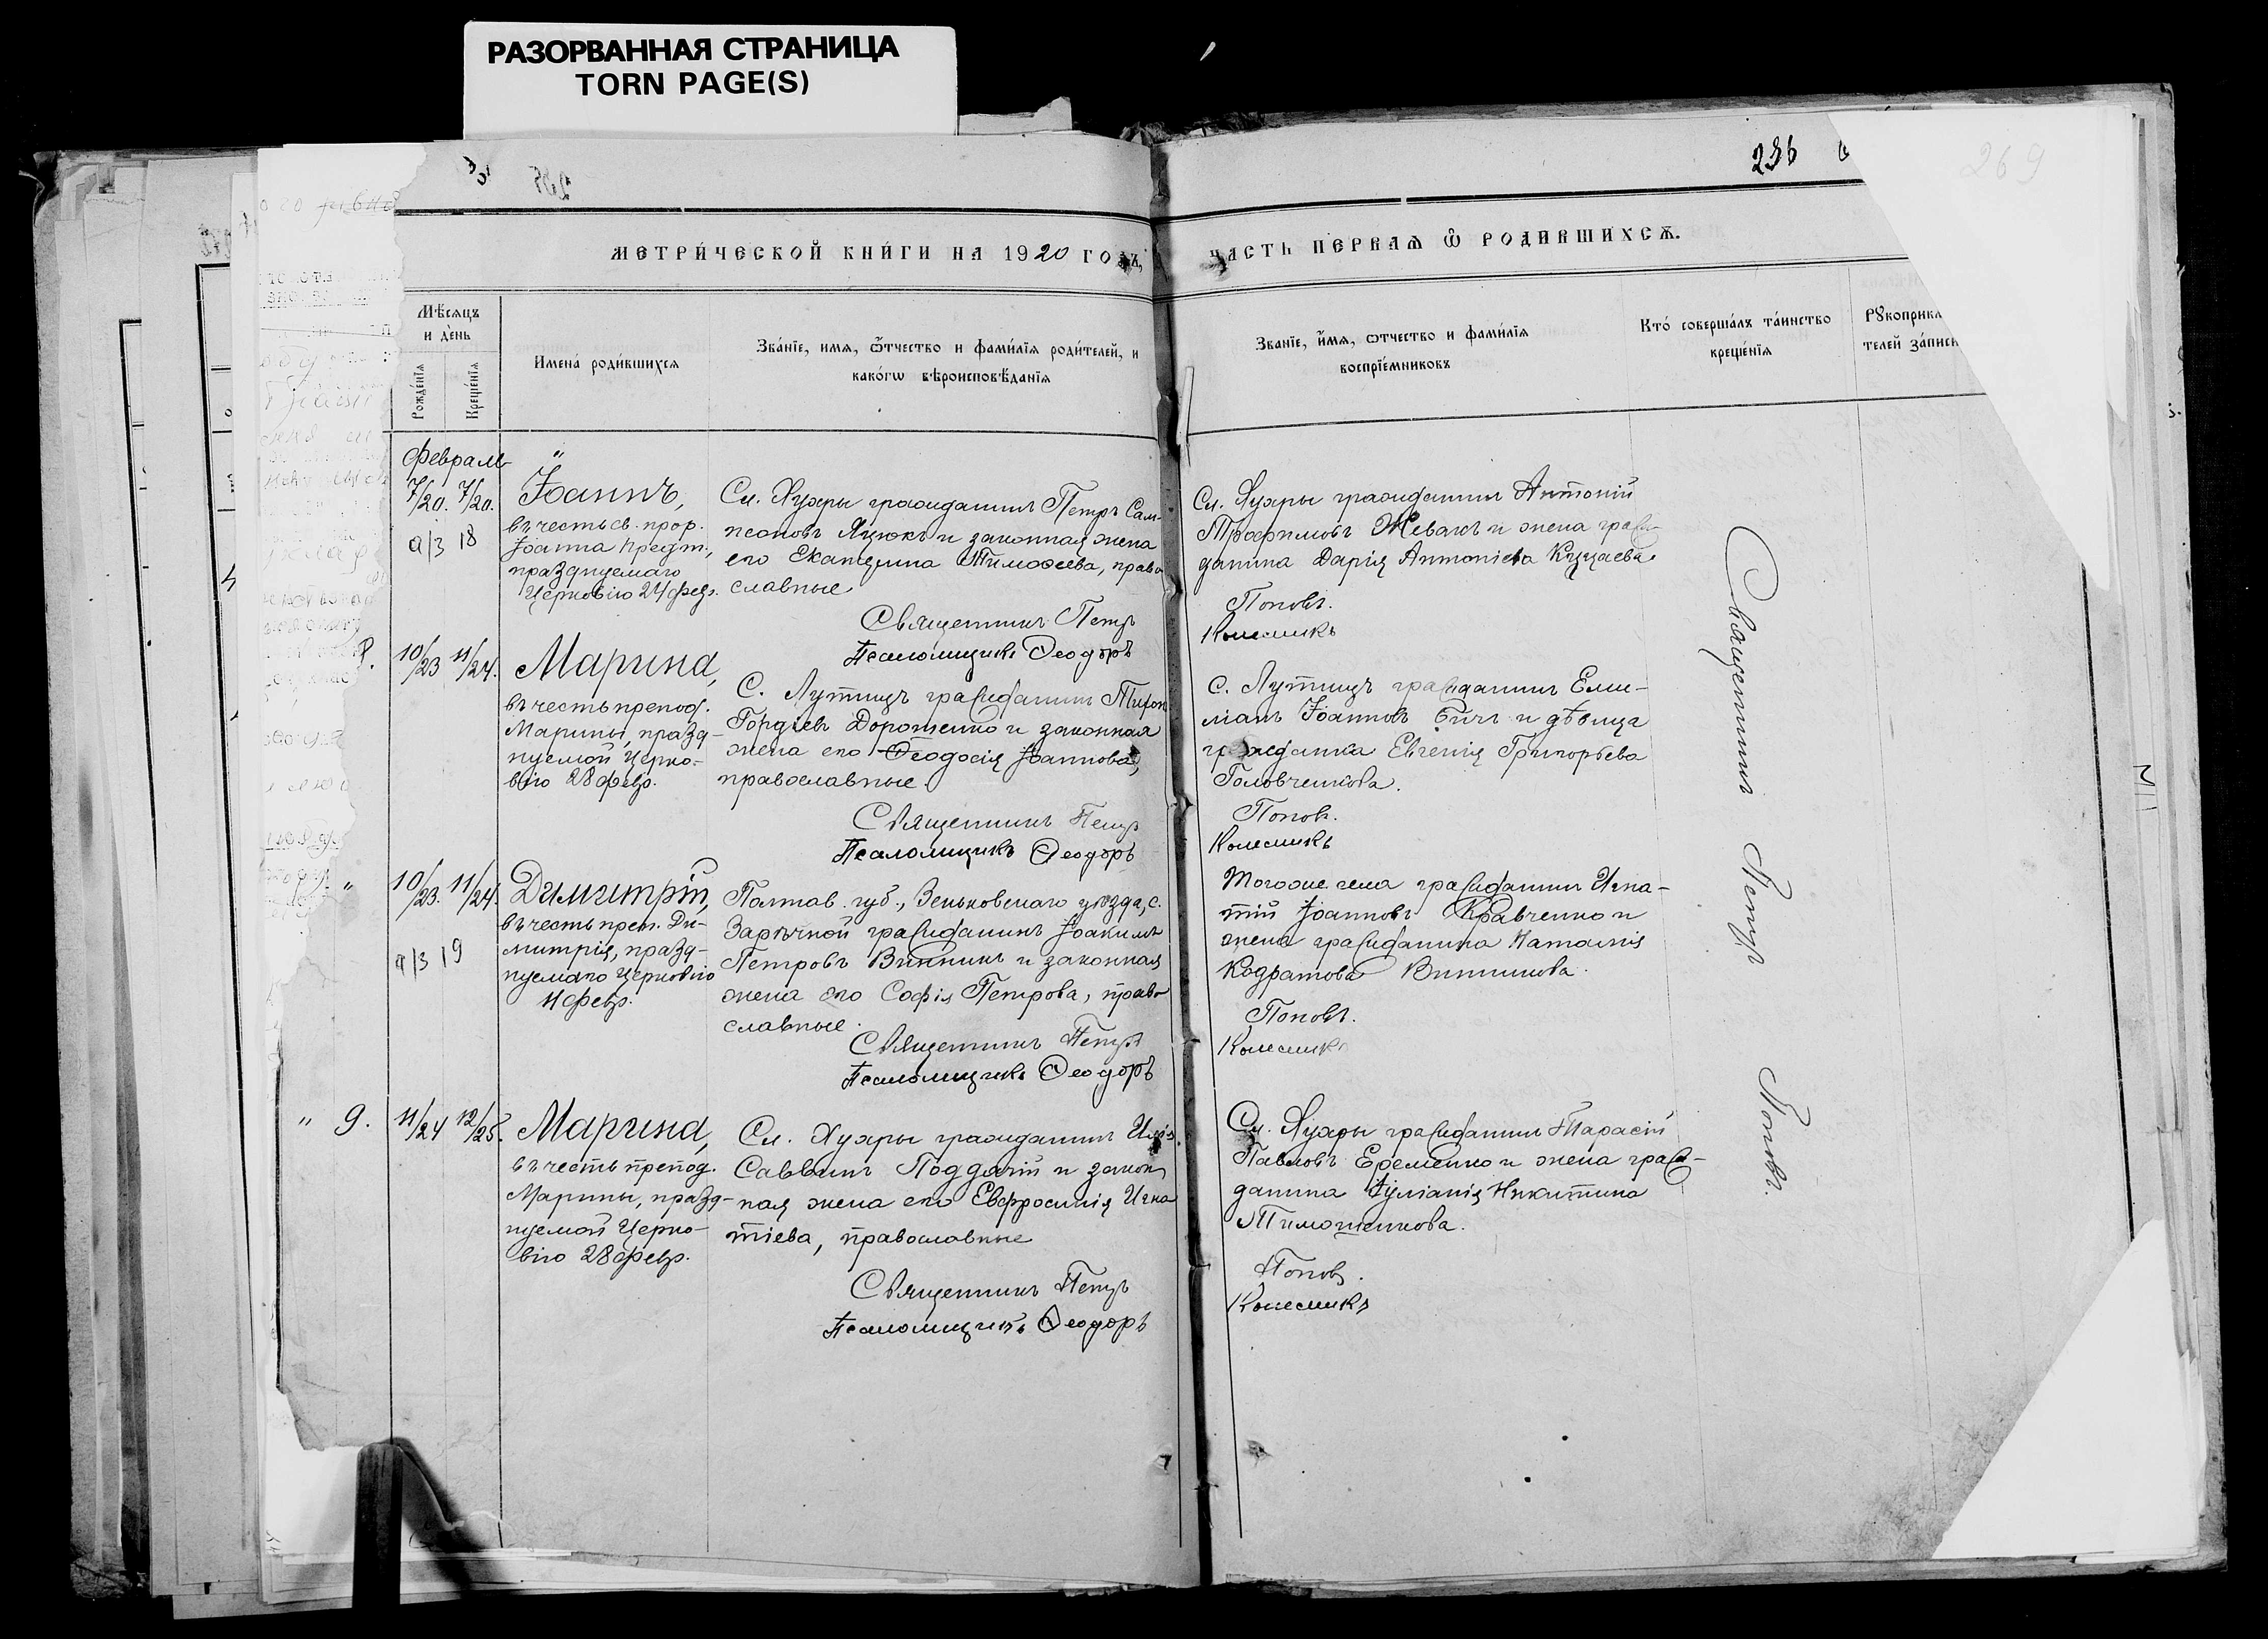 РАЗОРВАННАЯ СТРАНИЦА
TORN PAGE(S)
236
269
МЕТРИ́ЧЕСКОЙ КНИ́ГИ НА 1920 ГОДЪ,
ЧАСТЬ ПЕРВАѦ Ѿ РОДИВШИХСѦ.
Мѣ́сяцъ
и де́нь
Рожде́нїя
Креще́нїя
Имена́ роди́вшихся
Зва́нїе, имя, ѻ҆́тчество и фами́лїя роди́телей, и
како́гѡ вѣроисповѣ́данїя
Званїе, и҆́мя, ѻтчество и фами́лїя
воспрїе́мниковъ
Кто́ соверша́лъ та́инство
креще́нїя
Рꙋкоприкл
телей за́писи
Февраль
7/20. 7/20.
9/3 18
Іоаннъ,
въ честь св. прор.
Іоанна Предт.,
празднуемаго
Церковію 24 февр.
Сл. Хухры гражданинъ Петръ Сам-
псоновъ Яцюкъ и законная жена
его Екатерина Тимоѳеева, право
славные
Священникъ Петръ
Псаломщикъ Ѳеодоръ
Сл. Хухры гражданинъ Антоній
Трофимовъ Жевакъ и жена граж-
данина Дарія Антоніева Куцаева
Поповъ.
Колесникъ
8.
10/23 11/24.
Марина,
въ честь препод.
Марины, празд-
нуемой Церко-
вію 28 февр.
С. Лутищъ гражданинъ Тифон
Гордіевъ Дорошенко и законная
жена его Ѳеодосія Іоаннова,
православные.
Священникъ Петръ
Псаломщикъ Ѳеодоръ
С. Лутищъ гражданинъ Еми-
ліанъ Іоанновъ Бичъ и дѣвица
гражданка Евгенія Григорьева
Головченкова.
Поповъ.
Колесникъ
"
10/23. 11/24.
9/3 19
Димитрій,
въ честь преп. Ди-
митрія, празд-
нуемаго Церковію
11 февр.
Полтав. губ., Зеньковскаго уѣзда, с.
Зарѣчной гражданинъ Іоакимъ
Петровъ Винникъ и законная
жена его Софія Петрова, право
славные.
Священникъ Петръ
Псаломщикъ Ѳеодоръ
Того же села гражданинъ Игна-
тій Іоанновъ Кравченко и
жена гражданина Наталія
Кодратова Винникова.
Поповъ.
Колесникъ
" 9.
11/24 12/25.
Марина,
въ честь препод.
Марины, празд-
нуемой Церко-
вію 28 февр.
Сл. Хухры гражданинъ Илія
Саввинъ Поддячій и закон
ная жена его Евфросинія Игна
тіева, православные
Священникъ Петръ
Псаломщикъ Ѳеодоръ
Сл. Хухры гражданинъ Тарасій
Павловъ Еременко и жена граж-
данина Іуліанія Никитина
Тимошенкова.
Поповъ.
Колесникъ
Священникъ Петръ Поповъ.